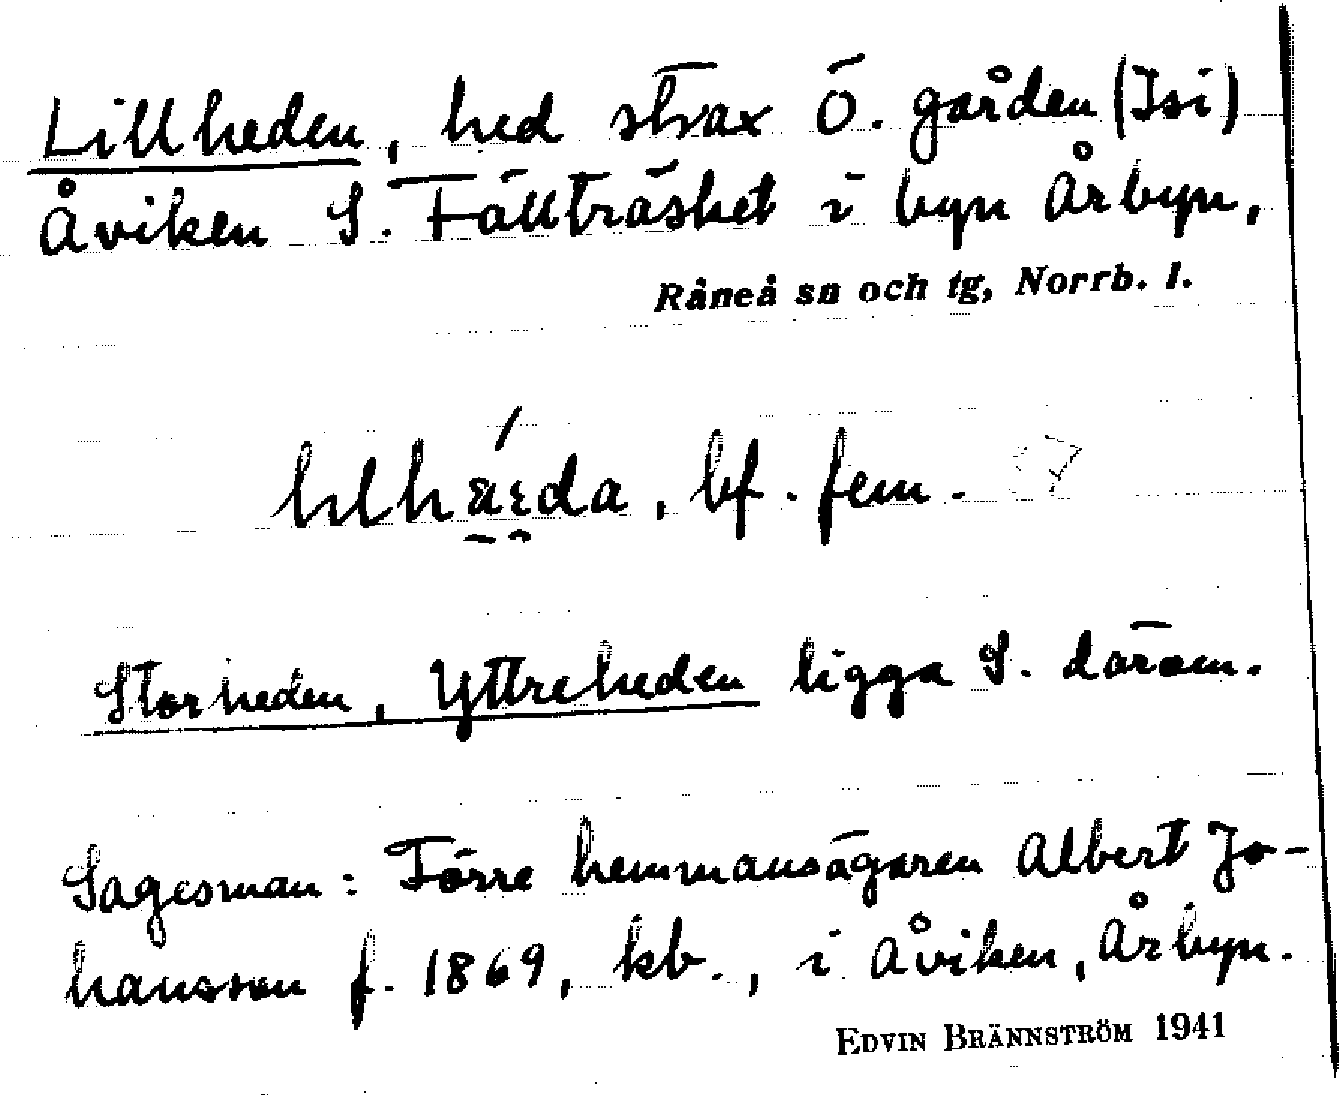 Lillheden, hed strax Ö. gården (Isi)
Åviken S. Fällträsket i byn Årbyn,
Råneå sn och tg, Norrb. l.
bf. fem.
Storheden, Yttreheden ligga S. därom.
Sagesman: Förre hemmansägaren Albert Jo-
hansson f. 1869, kb., i Åviken, Årbyn.
EDVIN BRÄNNSTRÖM 1941